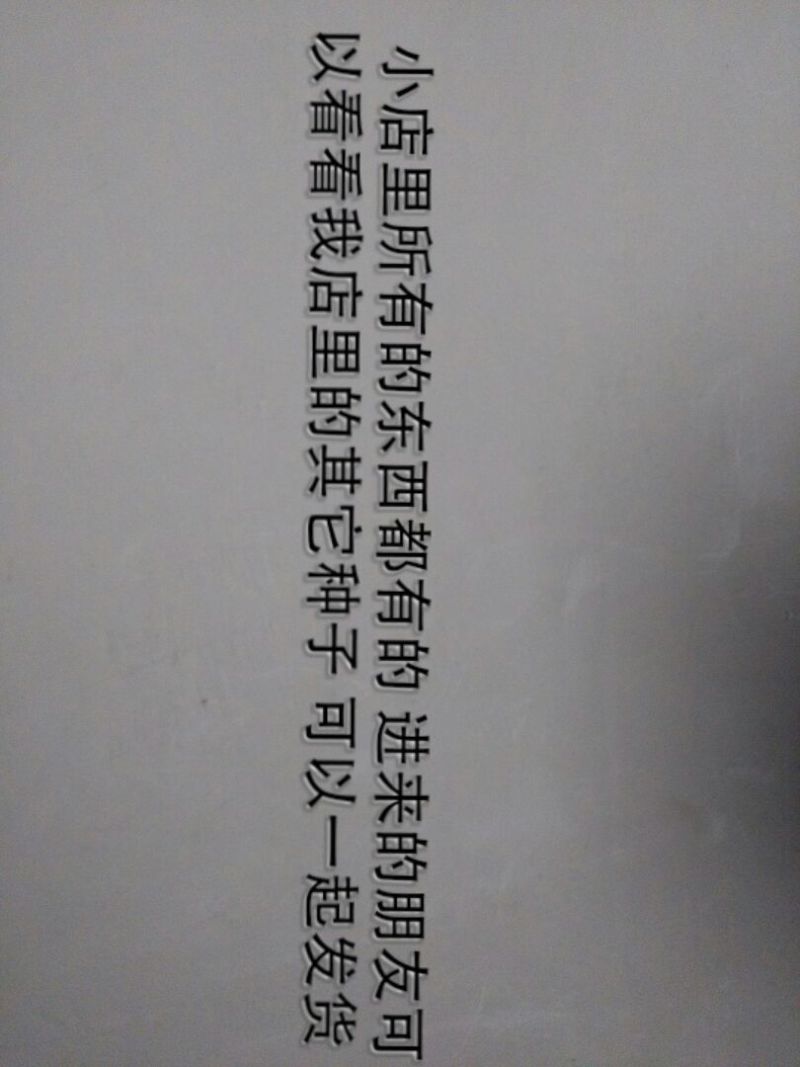 小店里所有的东西都有的 进来的朋友可
以看看我店里的其它种子 可以一起发货